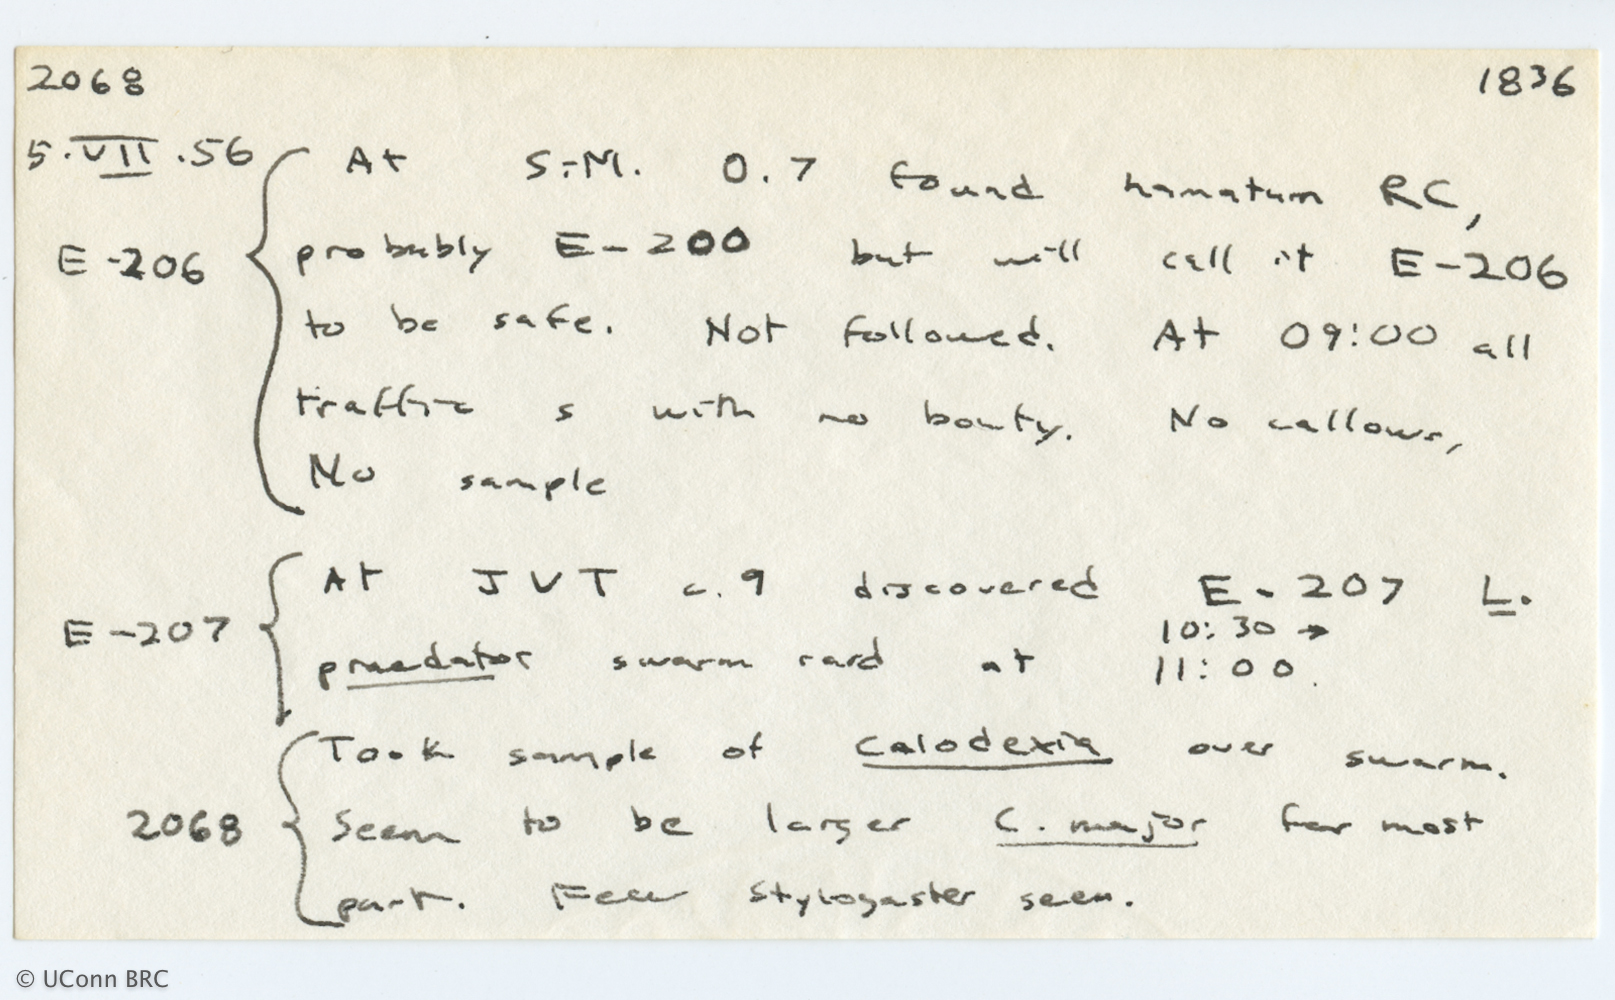 2068 1836
5.VII.56 At S-M. 0.7 found hamatum RC,
E-206 probably E-200 but will call it E-206
to be safe. Not followed. At 09:00 all
traffic s with no booty. No callows,
No sample
At JVT c.9 discovered E-207 L.
E-207 praedator swarm raid at 10:30 →
11:00.
Took sample of Calodexia over swarm.
2068 Seem to be larger C. major for most
part. Few Stylogaster seen.
© UConn BRC